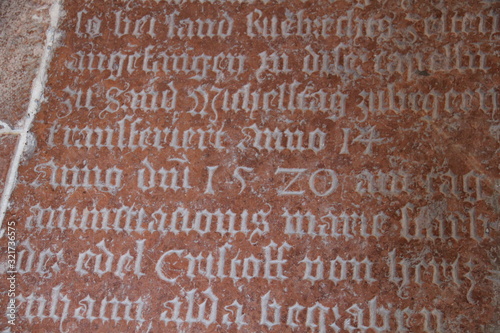 so bei sand Ruprechtz zeiten
angefangen zu diser capelln
zu Sand Michelstag zubegern
transferiert Anno 14
Anno dni 1520 am tag
annuntiacionis marie starb
der edel Cristoff von
alda begraben